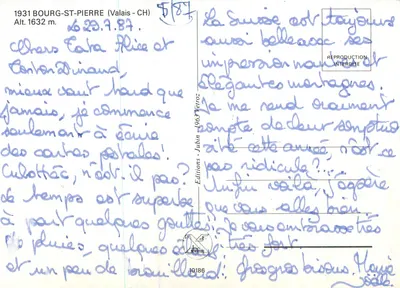 1931 BOURG-ST-PIERRE (Valais - CH)
Alt. 1632 m.
Le 29.7.87.
Chers Tata Alice et
Tonton Dinand,
mieux vaut tard que
jamais, je commence
seulement à écrire
des cartes postales!
Culottée, n'est-il pas?
Le temps est superbe
à part quelques gouttes
de pluies, quelques
et un peu de brouillard.
S/87
La Suisse est toujours
aussi belle avec ses
impressionnantes et
élégantes montagnes.
Je me rend vraiment
compte de leur
cette année, n'est-ce
pas ridicule?...
Enfin voilà, j'espère
que vous allez bien.
Je vous embrasse très
très fort
Grosgros bisous.
REPRODUCTION
INTERDITE
Editions - Jubin - 1963 Verroz
10186